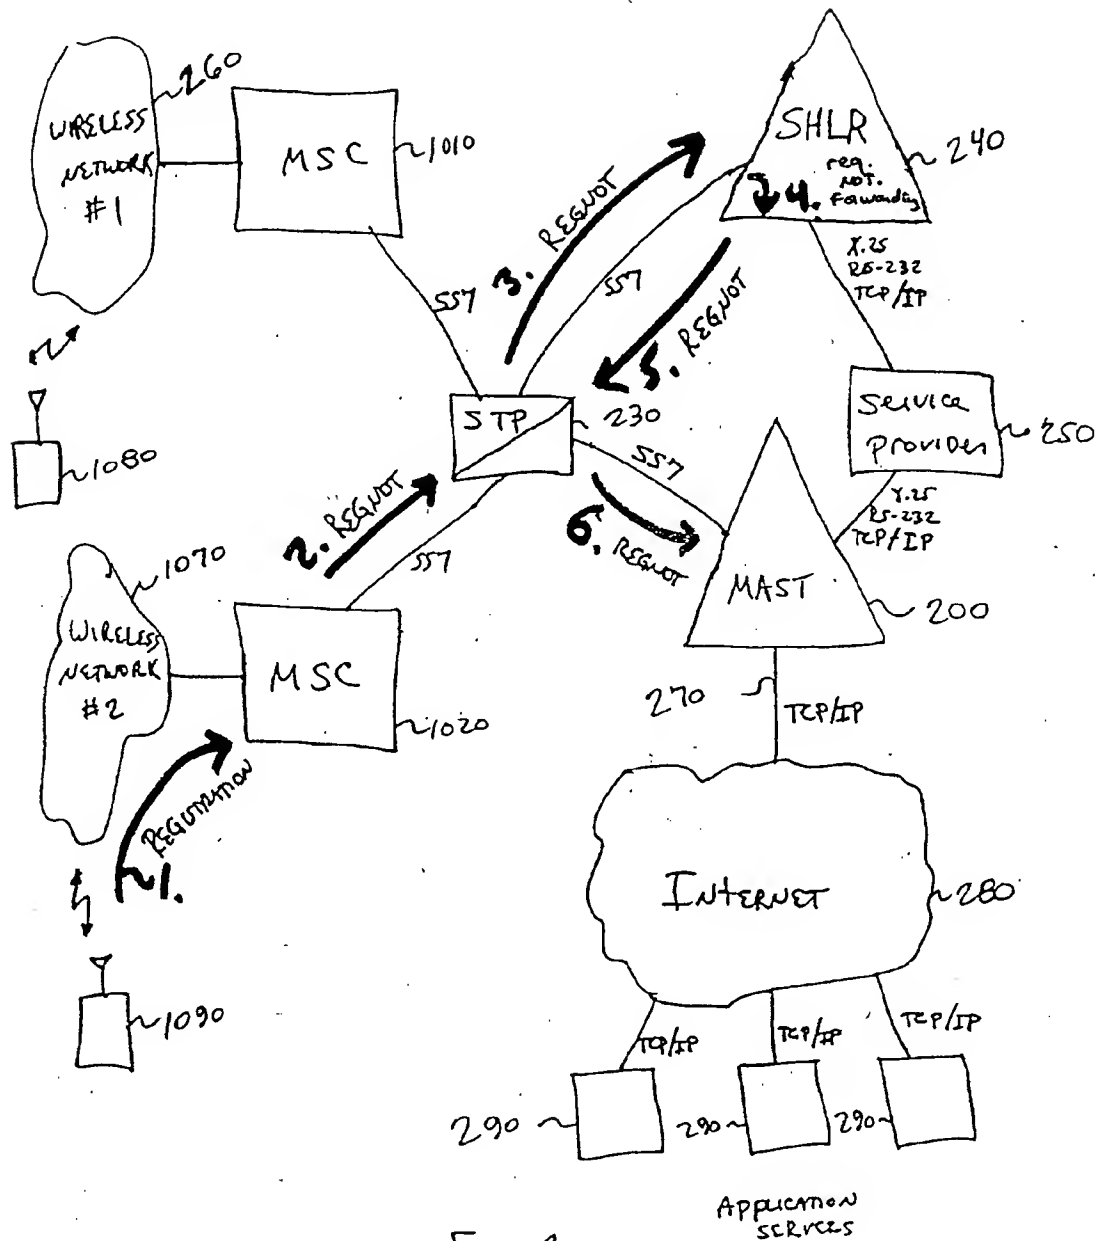 260
WIRELESS
NETWORK
#1
MSC
1010
SHLR
240
reg.
NOT.
Forwarding
4.
3. REGNOT
SS7
SS7
X.25
RS-232
TCP/IP
5. REGNOT
1080
STP
230
SS7
Service
Provider
250
2. REGNOT
SS7
6. REGNOT
X.25
RS-232
TCP/IP
MAST
200
1070
WIRELESS
NETWORK
#2
MSC
1020
270
TCP/IP
REGISTRATION
1.
INTERNET
280
1090
TCP/IP
TCP/IP
TCP/IP
290
290
290
APPLICATION
SERVERS